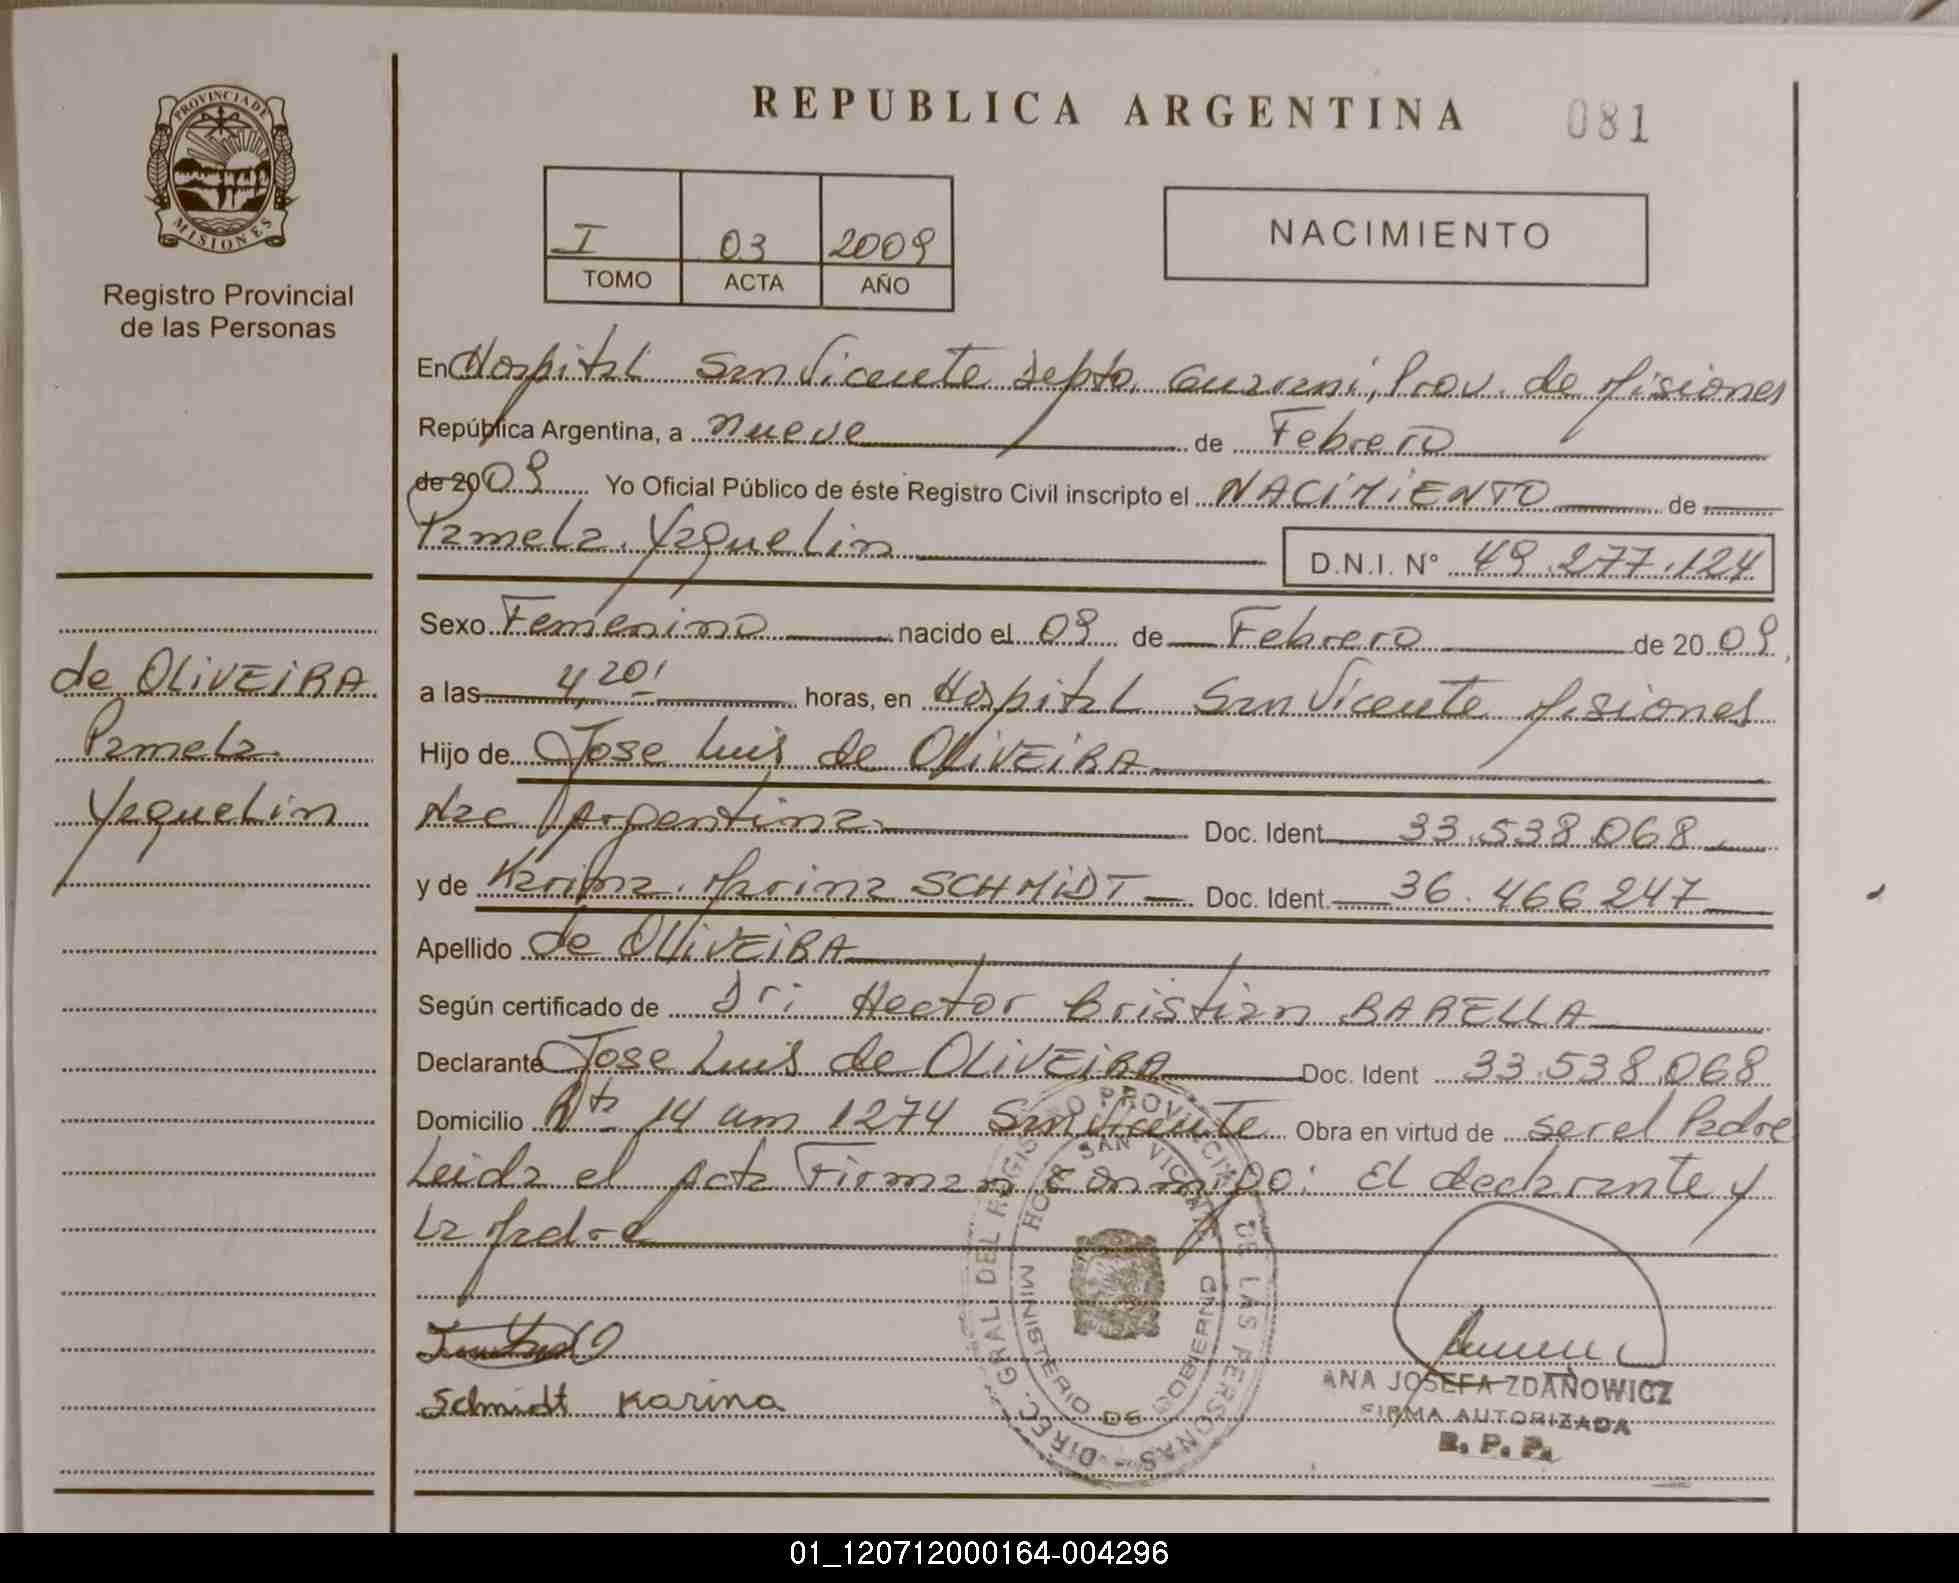 REPUBLICA ARGENTINA 081
PROVINCIA DE
MISIONES
Registro Provincial
de las Personas
I 03 2009
TOMO ACTA AÑO
NACIMIENTO
En Hospital San Vicente Depto. Guarani, Prov. de Misiones
República Argentina, a nueve de Febrero
de 2009 Yo Oficial Público de éste Registro Civil inscripto el NACIMIENTO de
Pamela Yaquelin D.N.I. N° 49.277.124
Sexo Femenino nacido el 09 de Febrero de 2009,
a las 4,20' horas, en Hospital San Vicente Misiones
Hijo de Jose Luis de OLIVEIRA
Nac Argentina Doc. Ident. 33.538.068
y de Karina Marina SCHMIDT Doc. Ident. 36.466.247
Apellido de OLIVEIRA
Según certificado de Dr: Hector Cristian BARELLA
Declarante Jose Luis de OLIVEIRA Doc. Ident 33.538.068
Domicilio Rta 14 km 1274 San Vicente Obra en virtud de ser el Padre
Leida el Acta Firman conmigo: El declarante y
la Madre
de OLIVEIRA
Pamela
Yaquelin
Schmidt Karina
DIREC. GRAL DEL REGISTRO PROVINCIAL DE LAS PERSONAS
HOSP. SAN VICENTE
MINISTERIO DE GOBIERNO
ANA JOSEFA ZDANOWICZ
FIRMA AUTORIZADA
R. P. P.
01_120712000164-004296